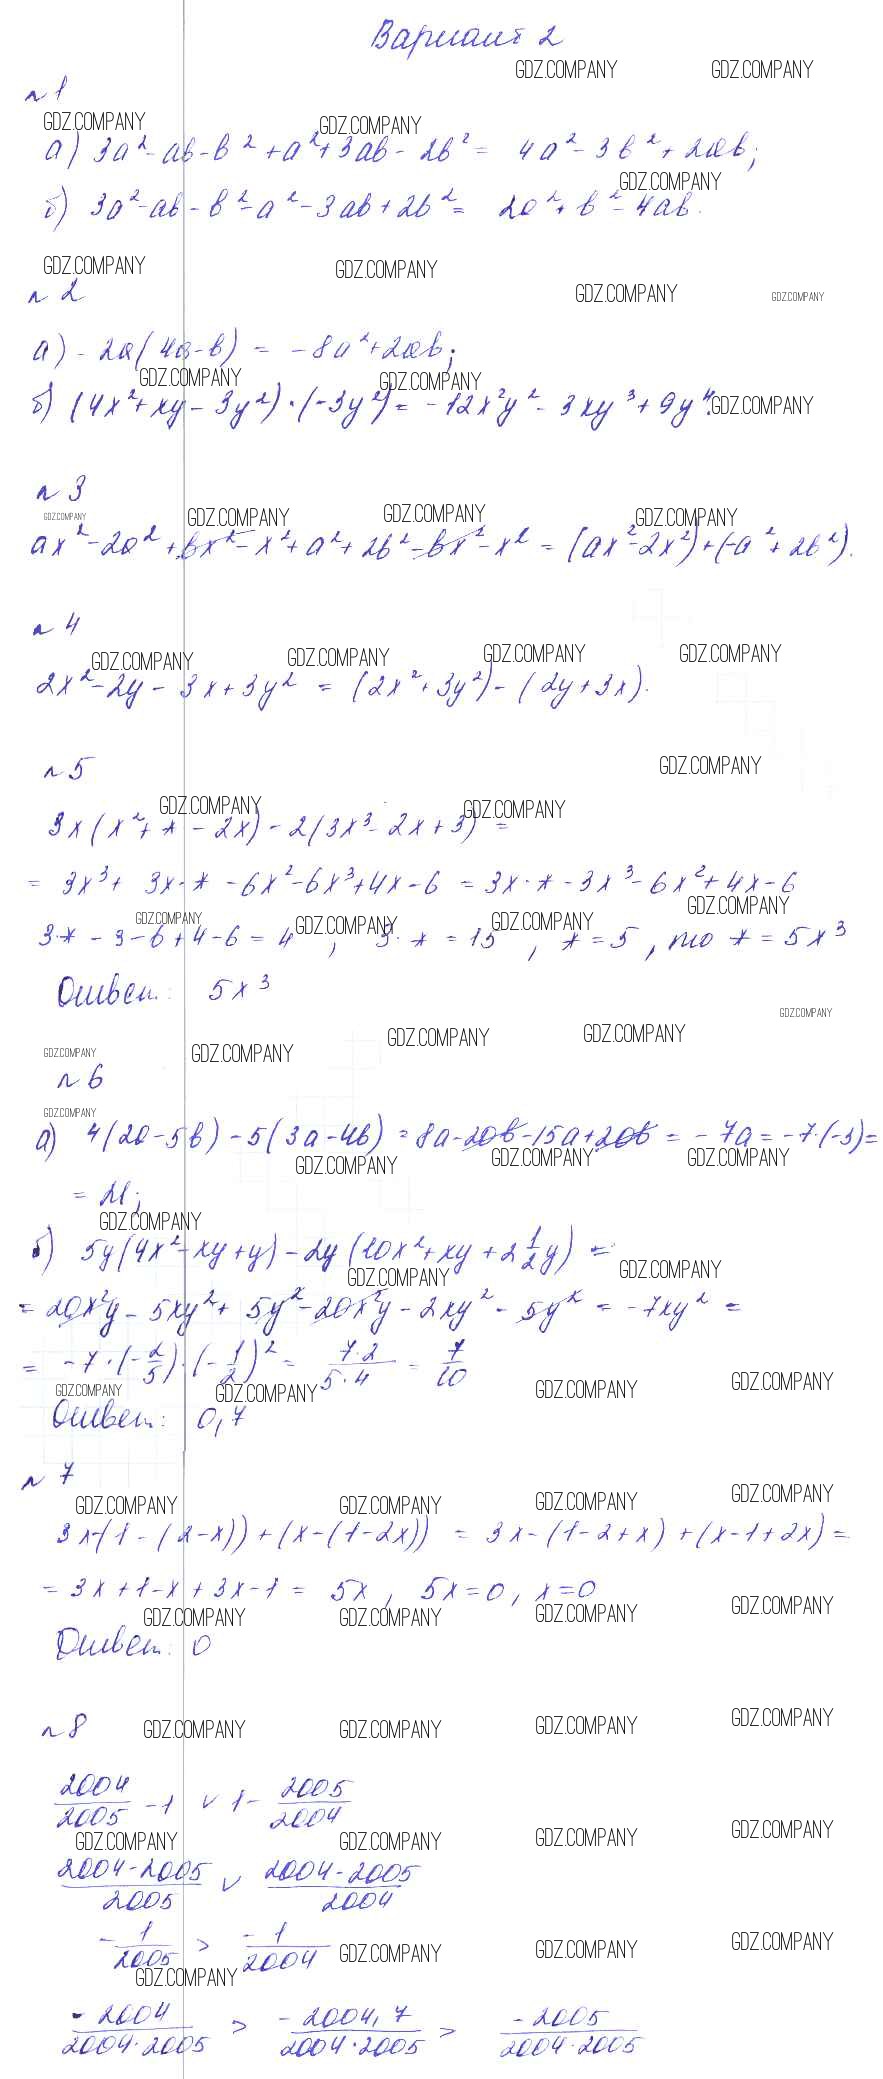 Вариант 2
GDZ.COMPANY GDZ.COMPANY
№1
GDZ.COMPANY GDZ.COMPANY
а) 3a² - ab - b² + a² + 3ab - 2b² = 4a² - 3b² + 2ab;
GDZ.COMPANY
б) 3a² - ab - b² - a² - 3ab + 2b² = 2a² + b² - 4ab.
GDZ.COMPANY GDZ.COMPANY
№2
GDZ.COMPANY GDZ.COMPANY
а) -2a(4a-b) = -8a² + 2ab;
GDZ.COMPANY GDZ.COMPANY
б) (4x² + xy - 3y²)·(-3y²) = -12x²y² - 3xy³ + 9y⁴.
GDZ.COMPANY
№3
GDZ.COMPANY GDZ.COMPANY GDZ.COMPANY GDZ.COMPANY
ax² - 2a² + bx² - x² + a² + 2b² - bx² - x² = (ax² - 2x²) + (-a² + 2b²).
№4
GDZ.COMPANY GDZ.COMPANY GDZ.COMPANY GDZ.COMPANY
2x² - 2y - 3x + 3y² = (2x² + 3y²) - (2y + 3x).
№5
GDZ.COMPANY
GDZ.COMPANY GDZ.COMPANY
3x(x² + * - 2x) - 2(3x³ - 2x + 3) =
= 3x³ + 3x·* - 6x² - 6x³ + 4x - 6 = 3x·* - 3x³ - 6x² + 4x - 6
GDZ.COMPANY GDZ.COMPANY GDZ.COMPANY GDZ.COMPANY
3·* - 3 - 6 + 4 - 6 = 4, 3·* = 15, * = 5, то * = 5x³
Ответ: 5x³
GDZ.COMPANY
GDZ.COMPANY GDZ.COMPANY GDZ.COMPANY GDZ.COMPANY
№6
GDZ.COMPANY
а) 4(2a-5b) - 5(3a-4b) = 8a - 20b - 15a + 20b = -7a = -7·(-3) =
GDZ.COMPANY GDZ.COMPANY GDZ.COMPANY
= 21;
GDZ.COMPANY
б) 5y(4x² - xy + y) - 2y(10x² + xy + 2 1/2 y) =
GDZ.COMPANY GDZ.COMPANY
= 20x²y - 5xy² + 5y² - 20x²y - 2xy² - 5y² = -7xy² =
= -7·(-2/5)·(-1/2)² = 7·2/5·4 = 7/10
GDZ.COMPANY GDZ.COMPANY GDZ.COMPANY GDZ.COMPANY
Ответ: 0,7
№7
GDZ.COMPANY GDZ.COMPANY GDZ.COMPANY GDZ.COMPANY
3x-(1-(2-x)) + (x-(1-2x)) = 3x - (1-2+x) + (x-1+2x) =
= 3x + 1 - x + 3x - 1 = 5x, 5x = 0, x = 0
GDZ.COMPANY GDZ.COMPANY GDZ.COMPANY GDZ.COMPANY
Ответ: 0
№8
GDZ.COMPANY GDZ.COMPANY GDZ.COMPANY GDZ.COMPANY
2004/2005 - 1 ∨ 1 - 2005/2004
GDZ.COMPANY GDZ.COMPANY GDZ.COMPANY GDZ.COMPANY
2004-2005/2005 ∨ 2004-2005/2004
-1/2005 > -1/2004
GDZ.COMPANY GDZ.COMPANY GDZ.COMPANY
GDZ.COMPANY
-2004/2004·2005 > -2004,7/2004·2005 > -2005/2004·2005